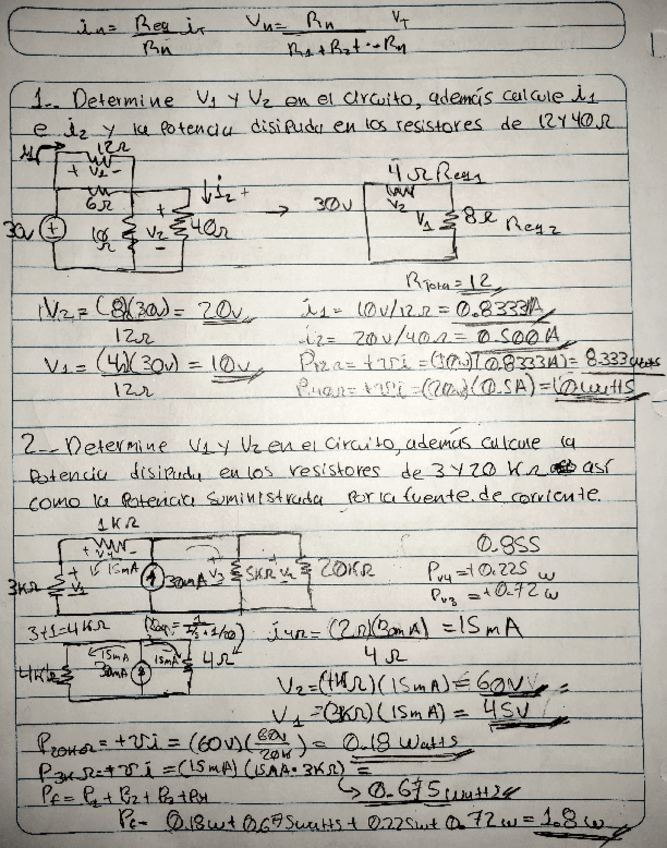 in = Req/Rn iT    Vn = Rn/R1+R2+...Rn VT
1.- Determine V1 y V2 en el circuito, además calcule i1
e i2 y la potencia disipada en los resistores de 12 y 40Ω
12Ω
+ V1 -
6Ω
30v
+ V2 -
40Ω
↓i2 +
→
30v
4Ω Req1
V2
V1
8Ω Req2
RTotal = 12
V2 = (8)(30v)/12Ω = 20v    i1 = 10v/12Ω = 0.8333A
i2 = 20v/40Ω = 0.500A
V1 = (4)(30v)/12Ω = 10v    P12Ω = +vi = (10v)(0.8333A) = 8.333watts
P40Ω = +vi = (20v)(0.5A) = 10watts
2.- Determine V1 y V2 en el circuito, además calcule la
Potencia disipada en los resistores de 3 y 20 KΩ así
como la Potencia suministrada Por la fuente de corriente.
1KΩ
+ V4 -
15mA
3KΩ
+ V1 -
30mA
+ V3 -
5KΩ
+ V2 -
20KΩ
0.855
Pv4 = +0.225 w
Pv3 = +0.72 w
3+1=4KΩ    Req = 1/(1/5+1/20)    i4Ω = (2Ω)(30mA)/4Ω = 15mA
4KΩ
15mA
30mA
15mA
4Ω
V2 = (4KΩ)(15mA) = 60V
V1 = (3KΩ)(15mA) = 45V
P20KΩ = +vi = (60v)(60v/20K) = 0.18 Watts
P3KΩ = +vi = (15mA)(15mA·3KΩ) =
↳ 0.675watts
Pf = P1 + P2 + P3 + P4
Pf = 0.18w + 0.675watts + 0.225w + 0.72w = 1.8w